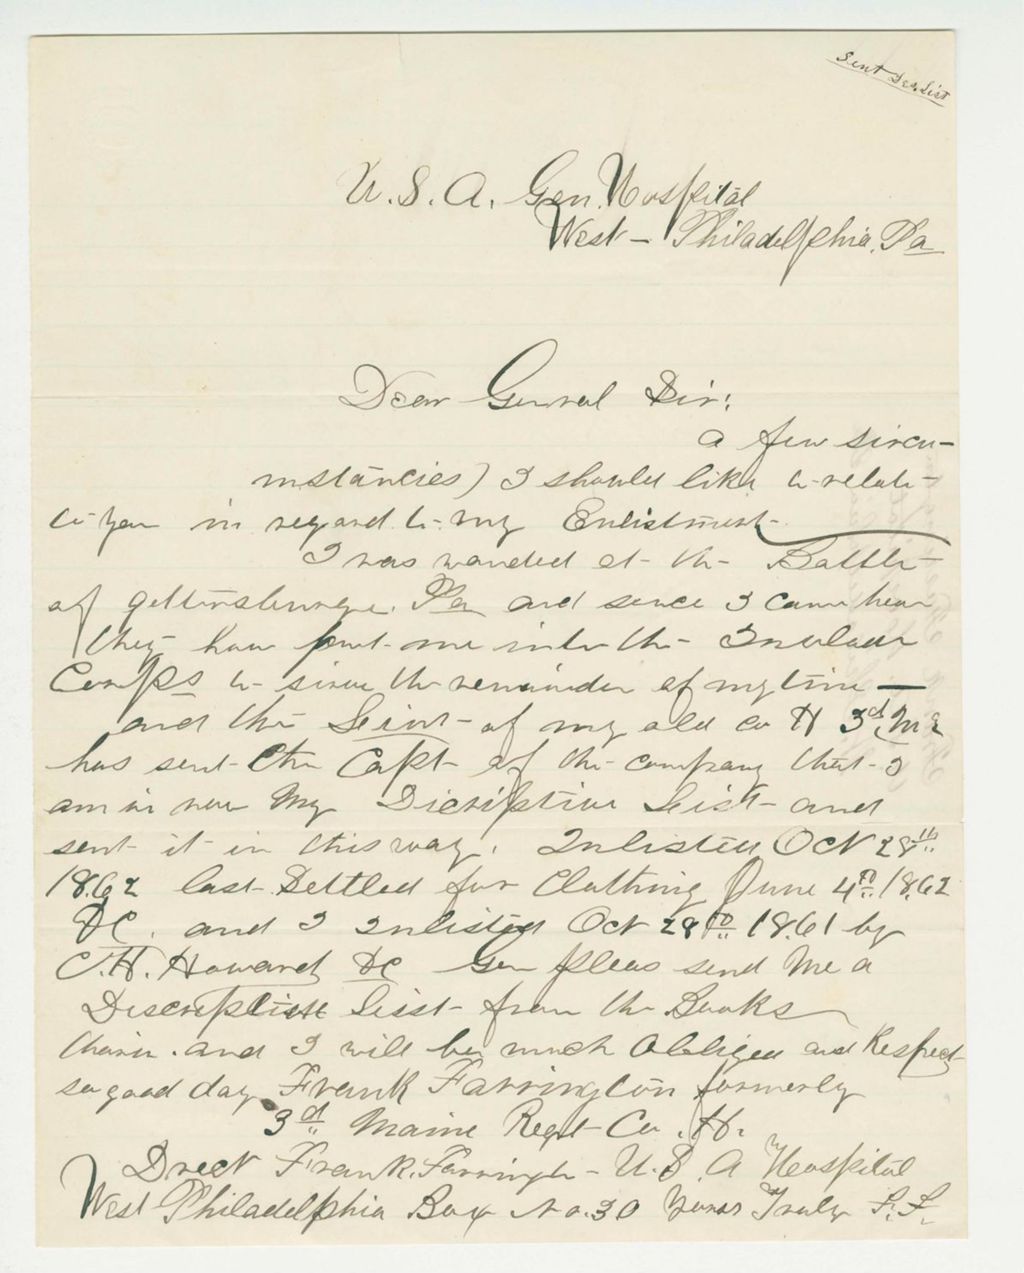 Sent Des. List
U. S. A. Gen. Hospital
West - Philadelphia. Pa
Dear General Sir:
a few sircu-
mstancies) I should like to relate
to you in regard to my Enlistment
I was wanded at the Battle
of gettinsburge. Pa and sence I came hear
they have put me into the Invalaue
Corps to sirve the remainder of my time —
and the Leiut of my old co H 3d Me
has sent the Capt of the company that I
am in now My Discriptive Leist and
sent it in this way. Inlisted Oct 28th
1862 last Settled for Clothing June 4th 1862
DC. and I Inlisted Oct 28th 1861 by
C. H. Howard DC Gen pleas send Me a
Descriptive Lisst from the Books
thair. and I will be much Obliged and Respect
so good day Frank Farrington formerly
3d Maine Regt Co. H.
Drect Frank. Farringtn - U. S. A Hospital
West Philadelphia Box No. 30 Yours Truly F. F.